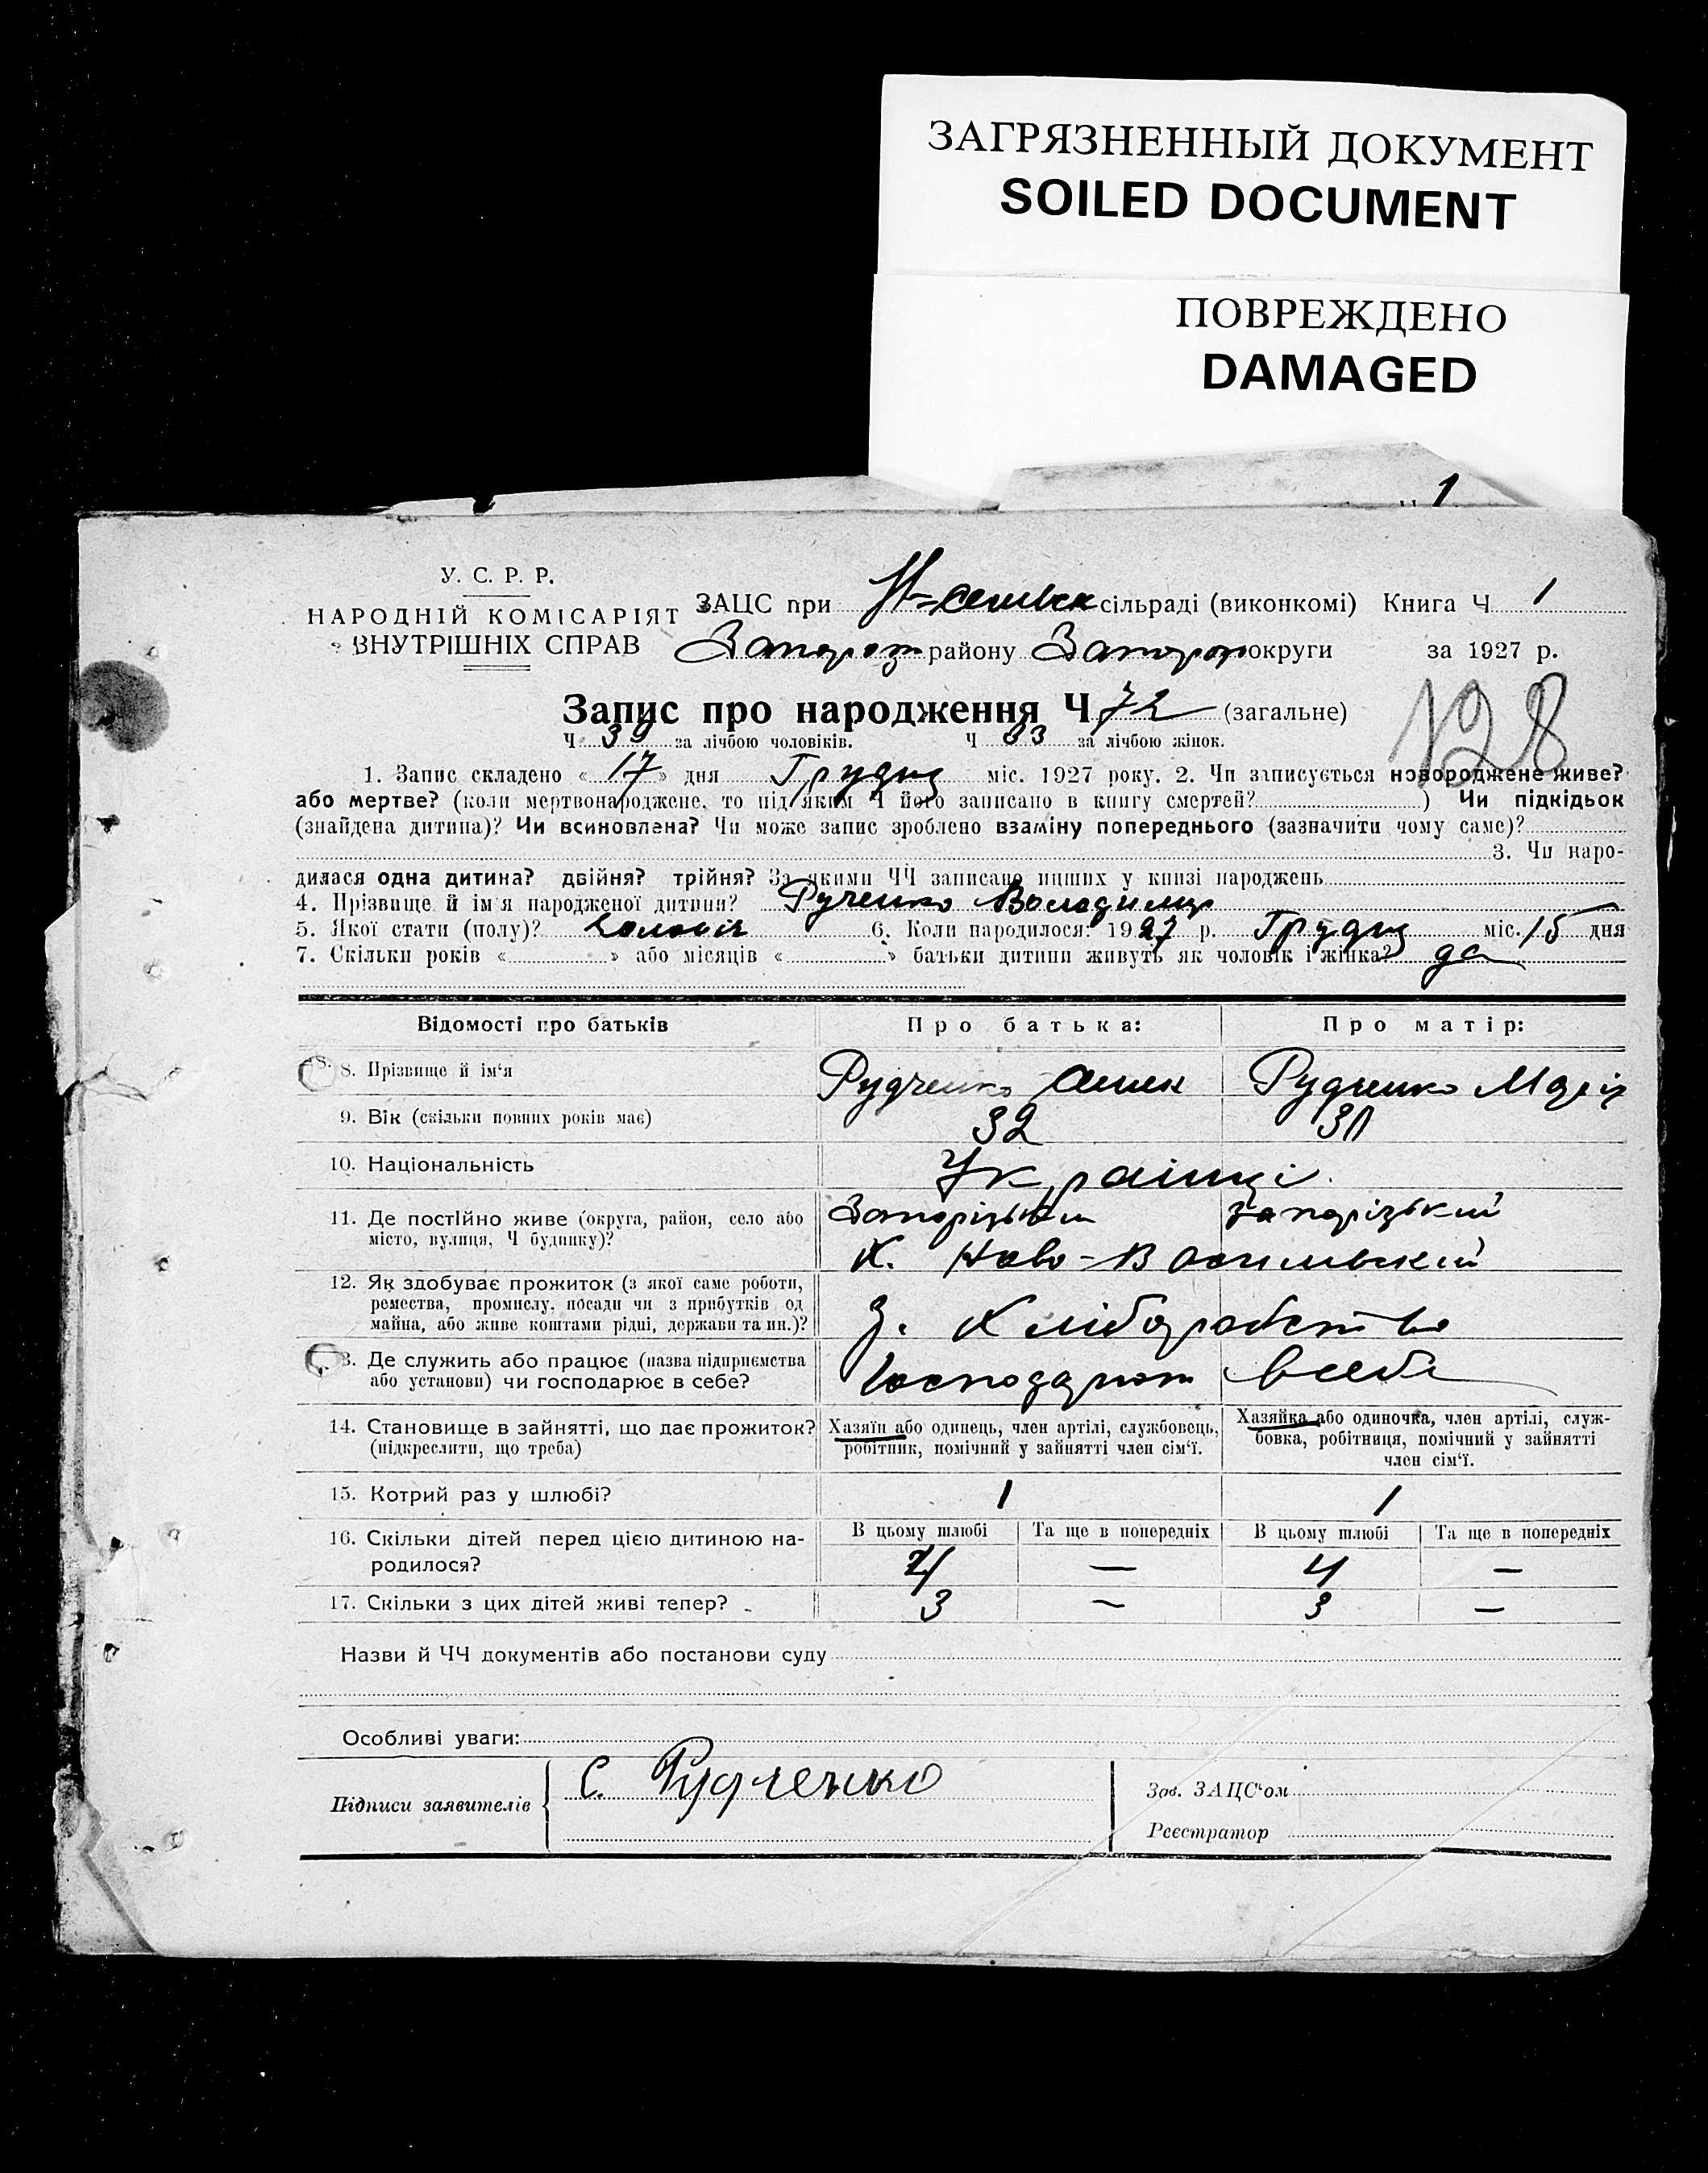 ЗАГРЯЗНЕННЫЙ ДОКУМЕНТ
SOILED DOCUMENT
ПОВРЕЖДЕНО
DAMAGED
1
У. С. Р. Р.
НАРОДНІЙ КОМІСАРІЯТ
ВНУТРІШНІХ СПРАВ
ЗАЦС при сільраді (виконкомі) Книга Ч 1
Запорож району Запорож округи за 1927 р.
Запис про народження Ч 72 (загальне)
128
Ч 39 за лічбою чоловіків. Ч 33 за лічбою жінок.
1. Запис складено « 17 » дня Грудня міс. 1927 року. 2. Чи записується новороджене живе?
або мертве? (коли мертвонароджене, то під яким Ч його записано в книгу смертей? ) Чи підкідьок
(знайдена дитина)? Чи всиновлена? Чи може запис зроблено взаміну попереднього (зазначити чому саме)?
3. Чи наро-
дилася одна дитина? двійня? трійня? За якими ЧЧ записано инших у книзі народжень
4. Прізвище й ім'я народженої дитини? Рученко Володимир
5. Якої стати (полу)? 6. Коли народилося: 1927 р. Грудня міс. 15 дня
7. Скільки років « » або місяців « » батьки дитини живуть як чоловік і жінка? да
Відомості про батьків Про батька: Про матір:
8. Прізвище й ім‘я Рудченко Рудченко Марія
9. Вік (скільки повних років має) 32 30
10. Національність Українці
11. Де постійно живе (округа, район, село або Запорізький запорізький
місто, вулиця, Ч будинку)? Х. Ново-Васильвський
12. Як здобуває прожиток (з якої саме роботи,
ремества, промислу, посади чи з прибутків од
майна, або живе коштами рідні, держави та ин.)? З. Хліборобства
13. Де служить або працює (назва підприємства
або установи) чи господарює в себе? Господарют всебе
14. Становище в зайнятті, що дає прожиток?
(підкреслити, що треба)
Хазяїн або одинець, член артілі, службовець,
робітник, помічний у зайнятті член сім‘ї.
Хазяйка або одиночка, член артілі, служ-
бовка, робітниця, помічний у зайнятті
член сім‘ї.
15. Котрий раз у шлюбі? 1 1
16. Скільки дітей перед цією дитиною на-
родилося?
В цьому шлюбі Та ще в попередніх В цьому шлюбі Та ще в попередніх
4 — 4 —
17. Скільки з цих дітей живі тепер? 3 — 3 —
Назви й ЧЧ документів або постанови суду
Особливі уваги:
Підписи заявителів С. Рудченко
Зав. ЗАЦС‘ом
Реєстратор